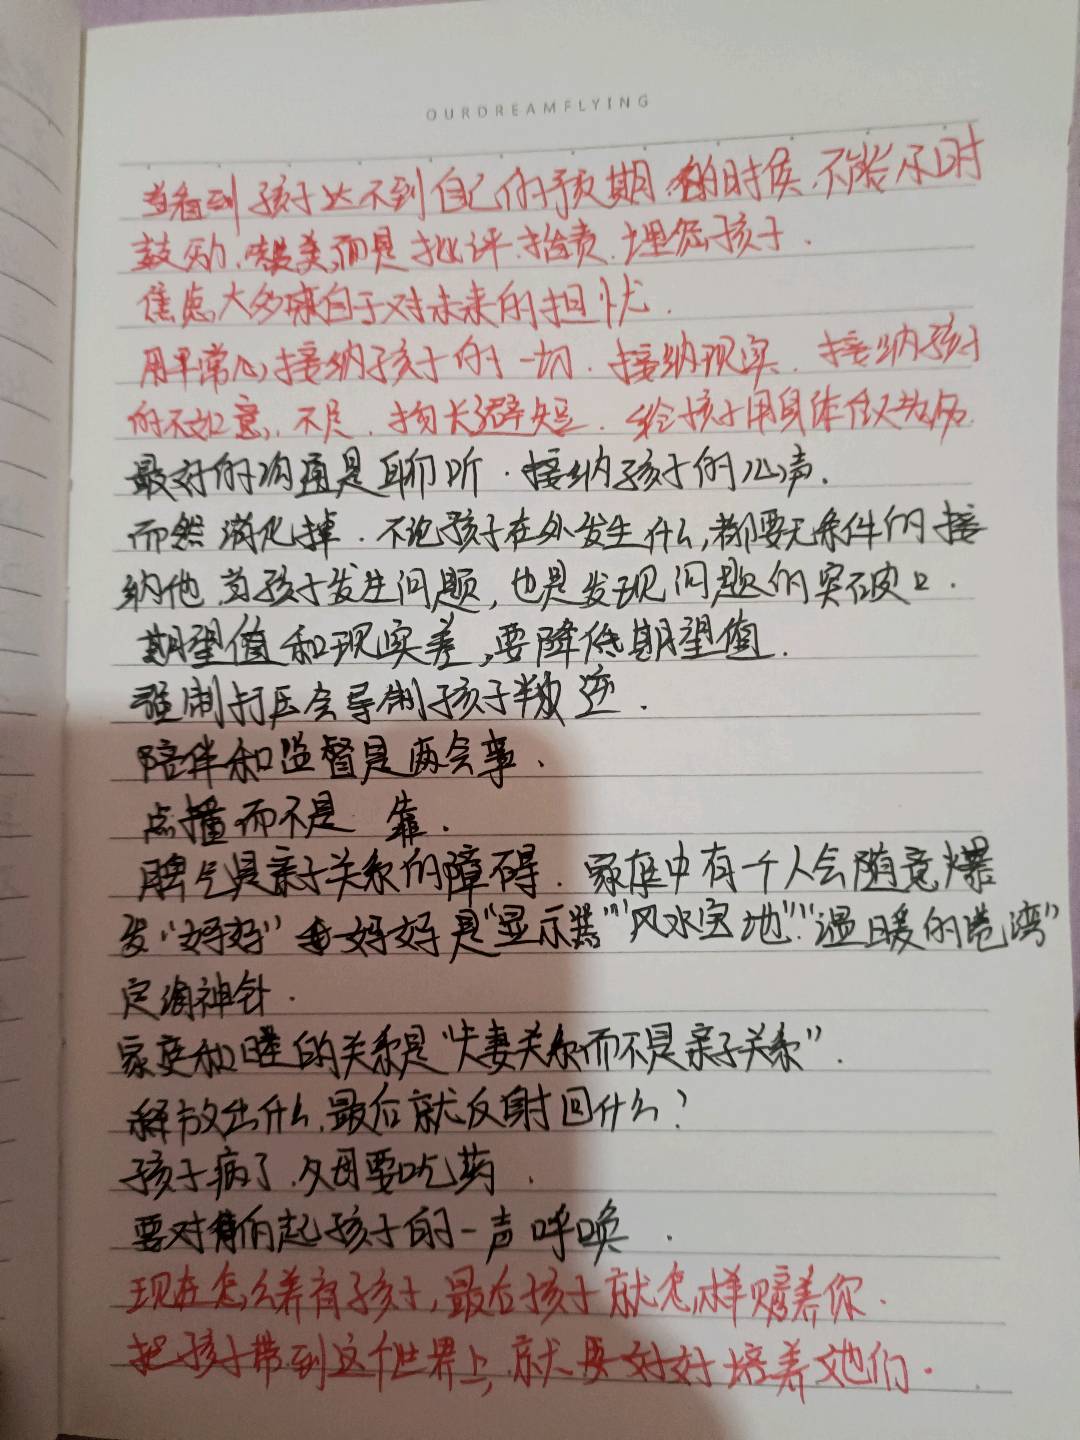 OURDREAMFLYING
当看到孩子达不到自己的预期的时候.不能及时
鼓励.赞美,而是批评.指责.埋怨孩子.
焦虑大多来自于对未来的担忧.
用平常心接纳孩子的一切.接纳现实.接纳孩子
的不如意.不足.扬长避短.给孩子用身体做
最好的沟通是聊听.接纳孩子的心声.
而然消化掉.不论孩子在外发生什么,都要无条件的接
纳他.当孩子发生问题,也是发现问题的突破口.
期望值和现实差,要降低期望值.
强制打压会导制孩子判逆.
陪伴和监督是两会事.
点播而不是 靠.
脾气是亲子关系的障碍.家庭中有一个人会随意爆
发"好好"妈好好是"显示"""风水宝地""温暖的巷湾"
定海神针.
家庭和睦的关系是"夫妻关系而不是亲子关系".
释放出什么.最后就反射回什么?
孩子病了.父母要吃药.
要对得起孩子的一声呼唤.
现在怎么养育孩子,最后孩子就怎样赡养你.
把孩子带到这个世界上,就要好好培养他们.